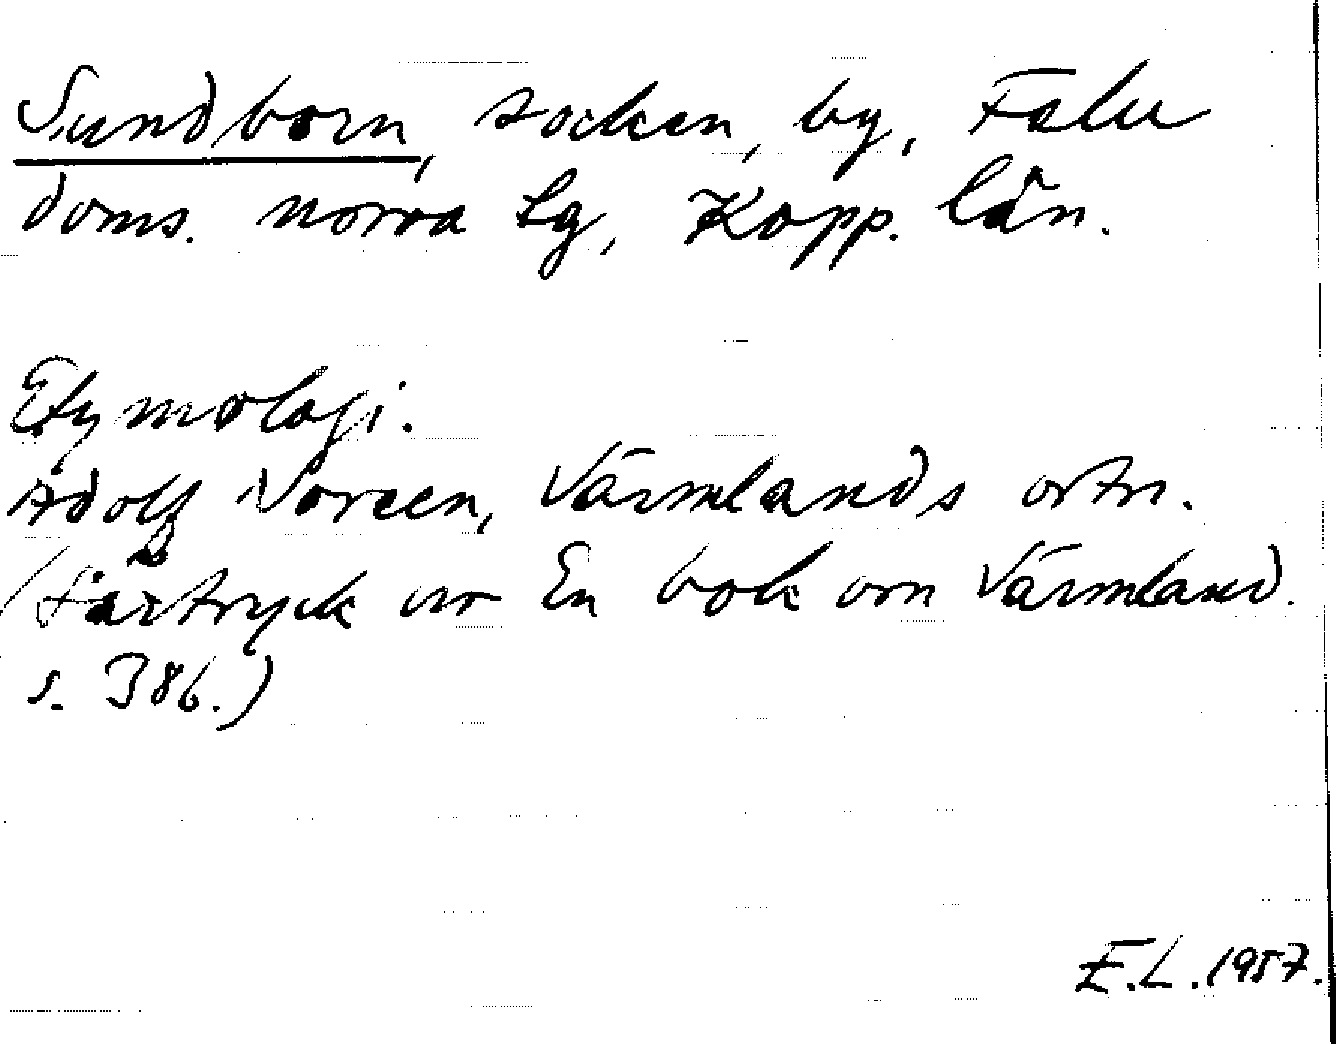 Sundborn, socken, by, Falu
doms. norra tg, Kopp. län.
Etymologi.
Adolf Noreen, Värmlands ortn.
(Särtryck ur En bok om Värmland.
s. 386.)
E.L. 1957.